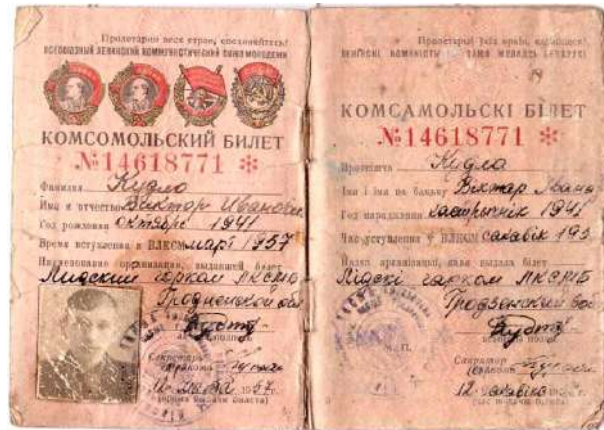 Пролетарии всех стран, соединяйтесь!
ВСЕСОЮЗНЫЙ ЛЕНИНСКИЙ КОММУНИСТИЧЕСКИЙ СОЮЗ МОЛОДЕЖИ
КОМСОМОЛЬСКИЙ БИЛЕТ
№14618771 *
Фамилия Кудло
Имя и отчество Виктор Иванович
Год рождения октябрь 1941
Время вступления в ВЛКСМ март 1957
Наименование организации, выдавшей билет
Лидский горком ЛКСМБ
Гродненской обл
Секретарь
горкома
12 марта 1957г.
Пролетарыі усіх краін,
КОМСАМОЛЬСКІ БІЛЕТ
№14618771 *
Кудло
Імя і імя па бацьку Віктар Івана
Год нараджэння кастрычнік 1941
Час уступлення ў ВЛКСМ сакавік 195
Назва арганізацыі, якая выдала білет
Лідскі гарком ЛКСМБ
Гродзенскай
М.П.
Сакратар
12 сакавіка